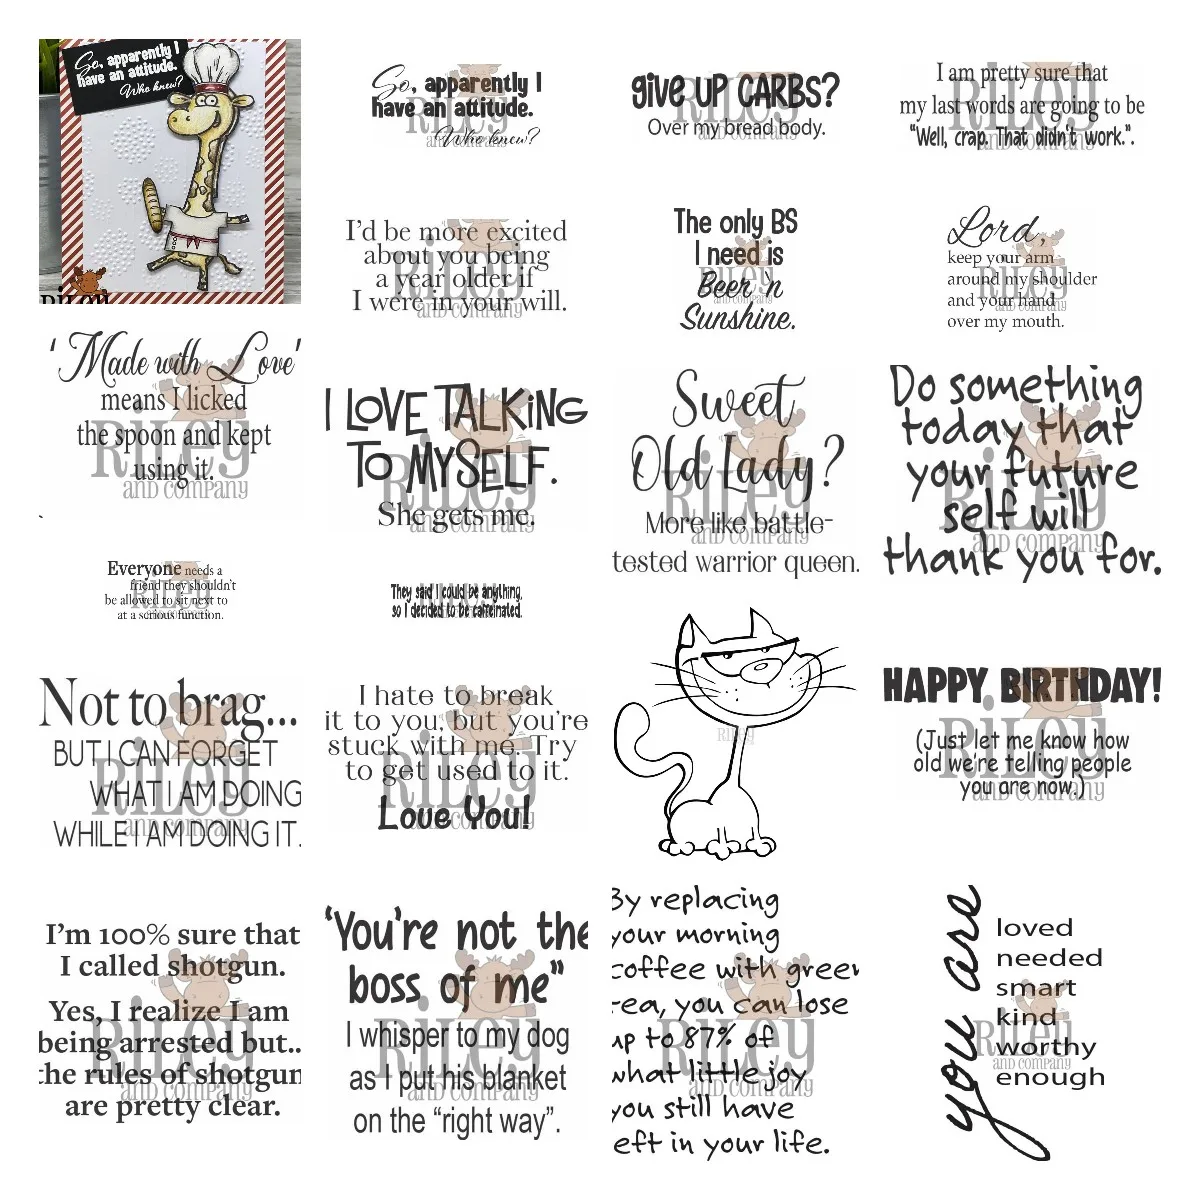 So, apparently I
have an attitude.
Who knew?
RiLey
So, apparently I
have an attitude.
Who knew?
RiLey
giVe UP CARBS?
Over my bread body.
I am pretty sure that
my last words are going to be
"Well, crap. That didn't work.".
RiLey
I'd be more excited
about you being
a year older if
I were in your will.
RiLey
AND COMPANY
The only BS
I need is
Beer 'n
Sunshine.
RiLey
and company
Lord,
keep your arm
around my shoulder
and your hand
over my mouth.
RiLey
'Made with Love'
means I licked
the spoon and kept
using it.
RiLey
AND COMPANY
I LOVE TALKING
TO MYSELF.
She gets me.
RiLey
and company
Sweet
Old Lady?
More like battle-
tested warrior queen.
RiLey
and company
Do something
today that
your future
self will
thank you for.
RiLey
and company
Everyone needs a
friend they shouldn't
be allowed to sit next to
at a serious function.
They said I could be anything,
so I decided to be caffeinated.
Not to brag...
BUT I CAN FORGET
WHAT I AM DOING
WHILE I AM DOING IT.
RiLey
and company
I hate to break
it to you, but you're
stuck with me. Try
to get used to it.
Love You!
RiLey
and company
RiLey
HAPPY BIRTHDAY!
(Just let me know how
old we're telling people
you are now.)
RiLey
and company
I'm 100% sure that
I called shotgun.
Yes, I realize I am
being arrested but..
the rules of shotgun
are pretty clear.
RiLey
AND COMPANY
'You're not the
boss of me"
I whisper to my dog
as I put his blanket
on the "right way".
RiLey
and company
By replacing
your morning
coffee with green
tea, you can lose
up to 87% of
what little joy
you still have
left in your life.
RiLey
and company
you are
loved
needed
smart
kind
worthy
enough
RiLey
and company